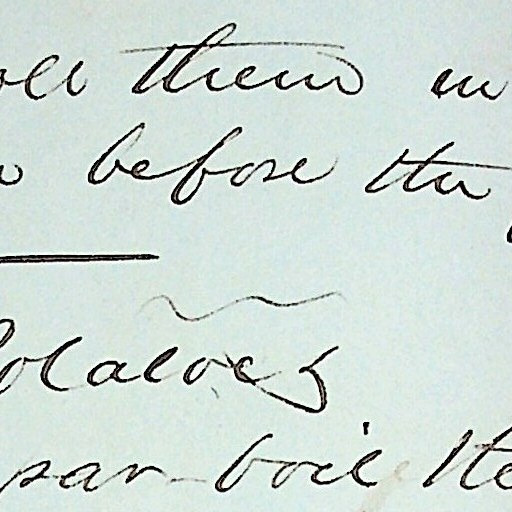 oll them in
before the
Potatoes
par-boil the